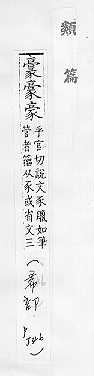 類篇
豪豪豪
乎官切說文豕鬣如筆
管者籀从豕或省文三
(㣇部
P346)